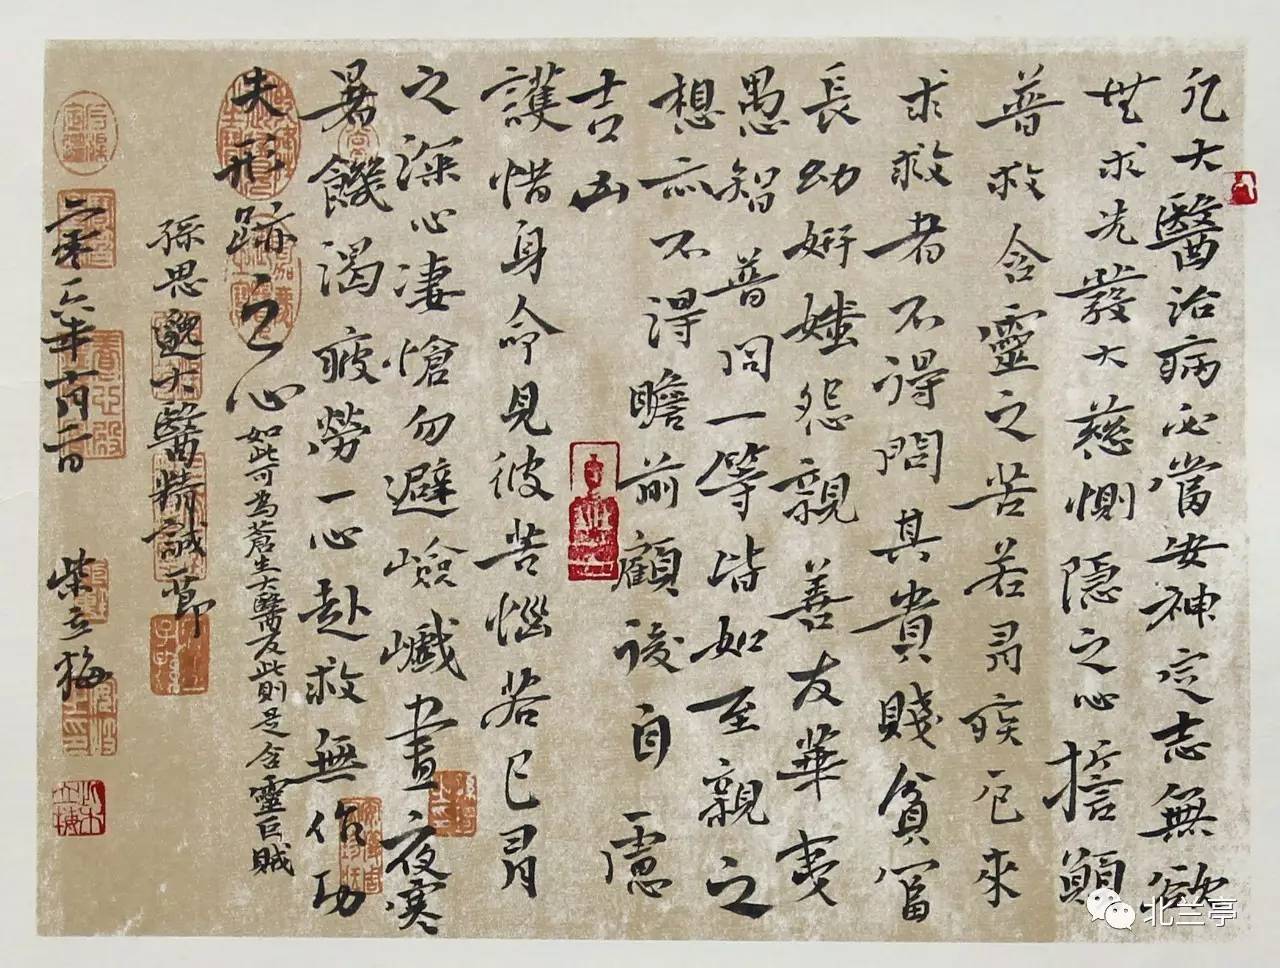 凡大醫治病必當安神定志無欲
無求先發大慈惻隱之心誓願
普救含靈之苦若有疾厄來
求救者不得問其貴賤貧富
長幼妍媸怨親善友華夷
愚智普同一等皆如至親之
想亦不得瞻前顧後自慮
吉凶
護惜身命見彼苦惱若己有
之深心凄愴勿避嶮巇晝夜寒
暑饑渴疲勞一心赴救無作功
夫形跡之心如此可為蒼生大醫反此則是含靈巨賊
孫思邈大醫精誠一節
柴立梅
北兰亭